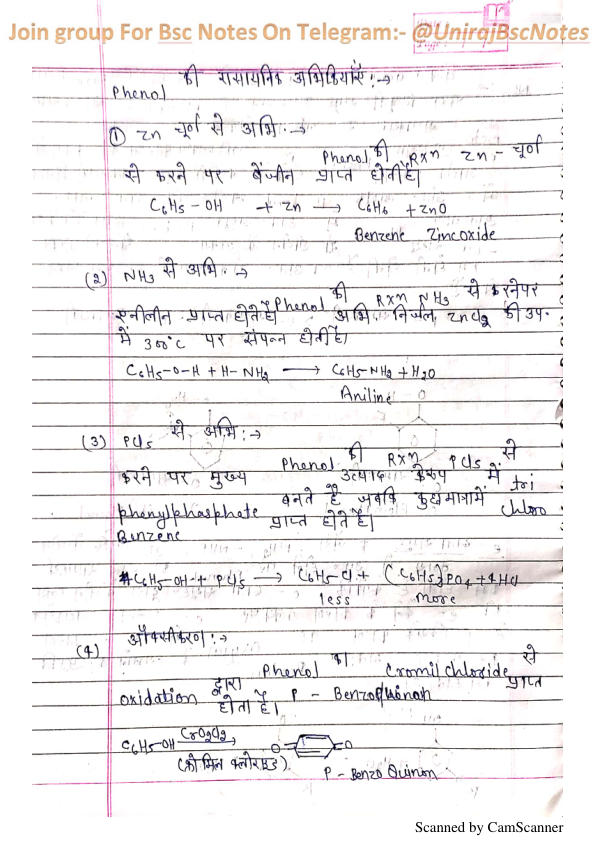 Join group For Bsc Notes On Telegram:- @UnirajBscNotes
Phenol की रासायनिक अभिक्रियाएँ :→
① Zn चूर्ण से अभि :→
Phenol की Rxn Zn - चूर्ण
से करने पर बेंजीन प्राप्त होती है।
C6H5-OH + Zn → C6H6 + ZnO
Benzene Zincoxide
(2) NH3 से अभि :→
Phenol की Rxn NH3 से करने पर
एनीलीन प्राप्त होते है अभि. निर्जल ZnCl2 की उप.
में 300°C पर संपन्न होती है।
C6H5-O-H + H-NH2 → C6H5-NH2 + H2O
Aniline
(3) PCl5 से अभि :→
Phenol की Rxn PCl5 से
करने पर मुख्य उत्पाद के रूप में tri
phenylphasphate बनते है जबकि कुछ मात्रा में chloro
Benzene प्राप्त होते है।
C6H5-OH + PCl5 → C6H5Cl + (C6H5)3PO4 + 4HCl
less more
(4) ऑक्सीकरण :→
Phenol का Cromil chloride से
oxidation द्वारा P - Benzoquinon प्राप्त
होता है।
C6H5-OH CrO2Cl2 O O
(क्रोमिल क्लोराइड)
P - Benzo Quinon
Scanned by CamScanner